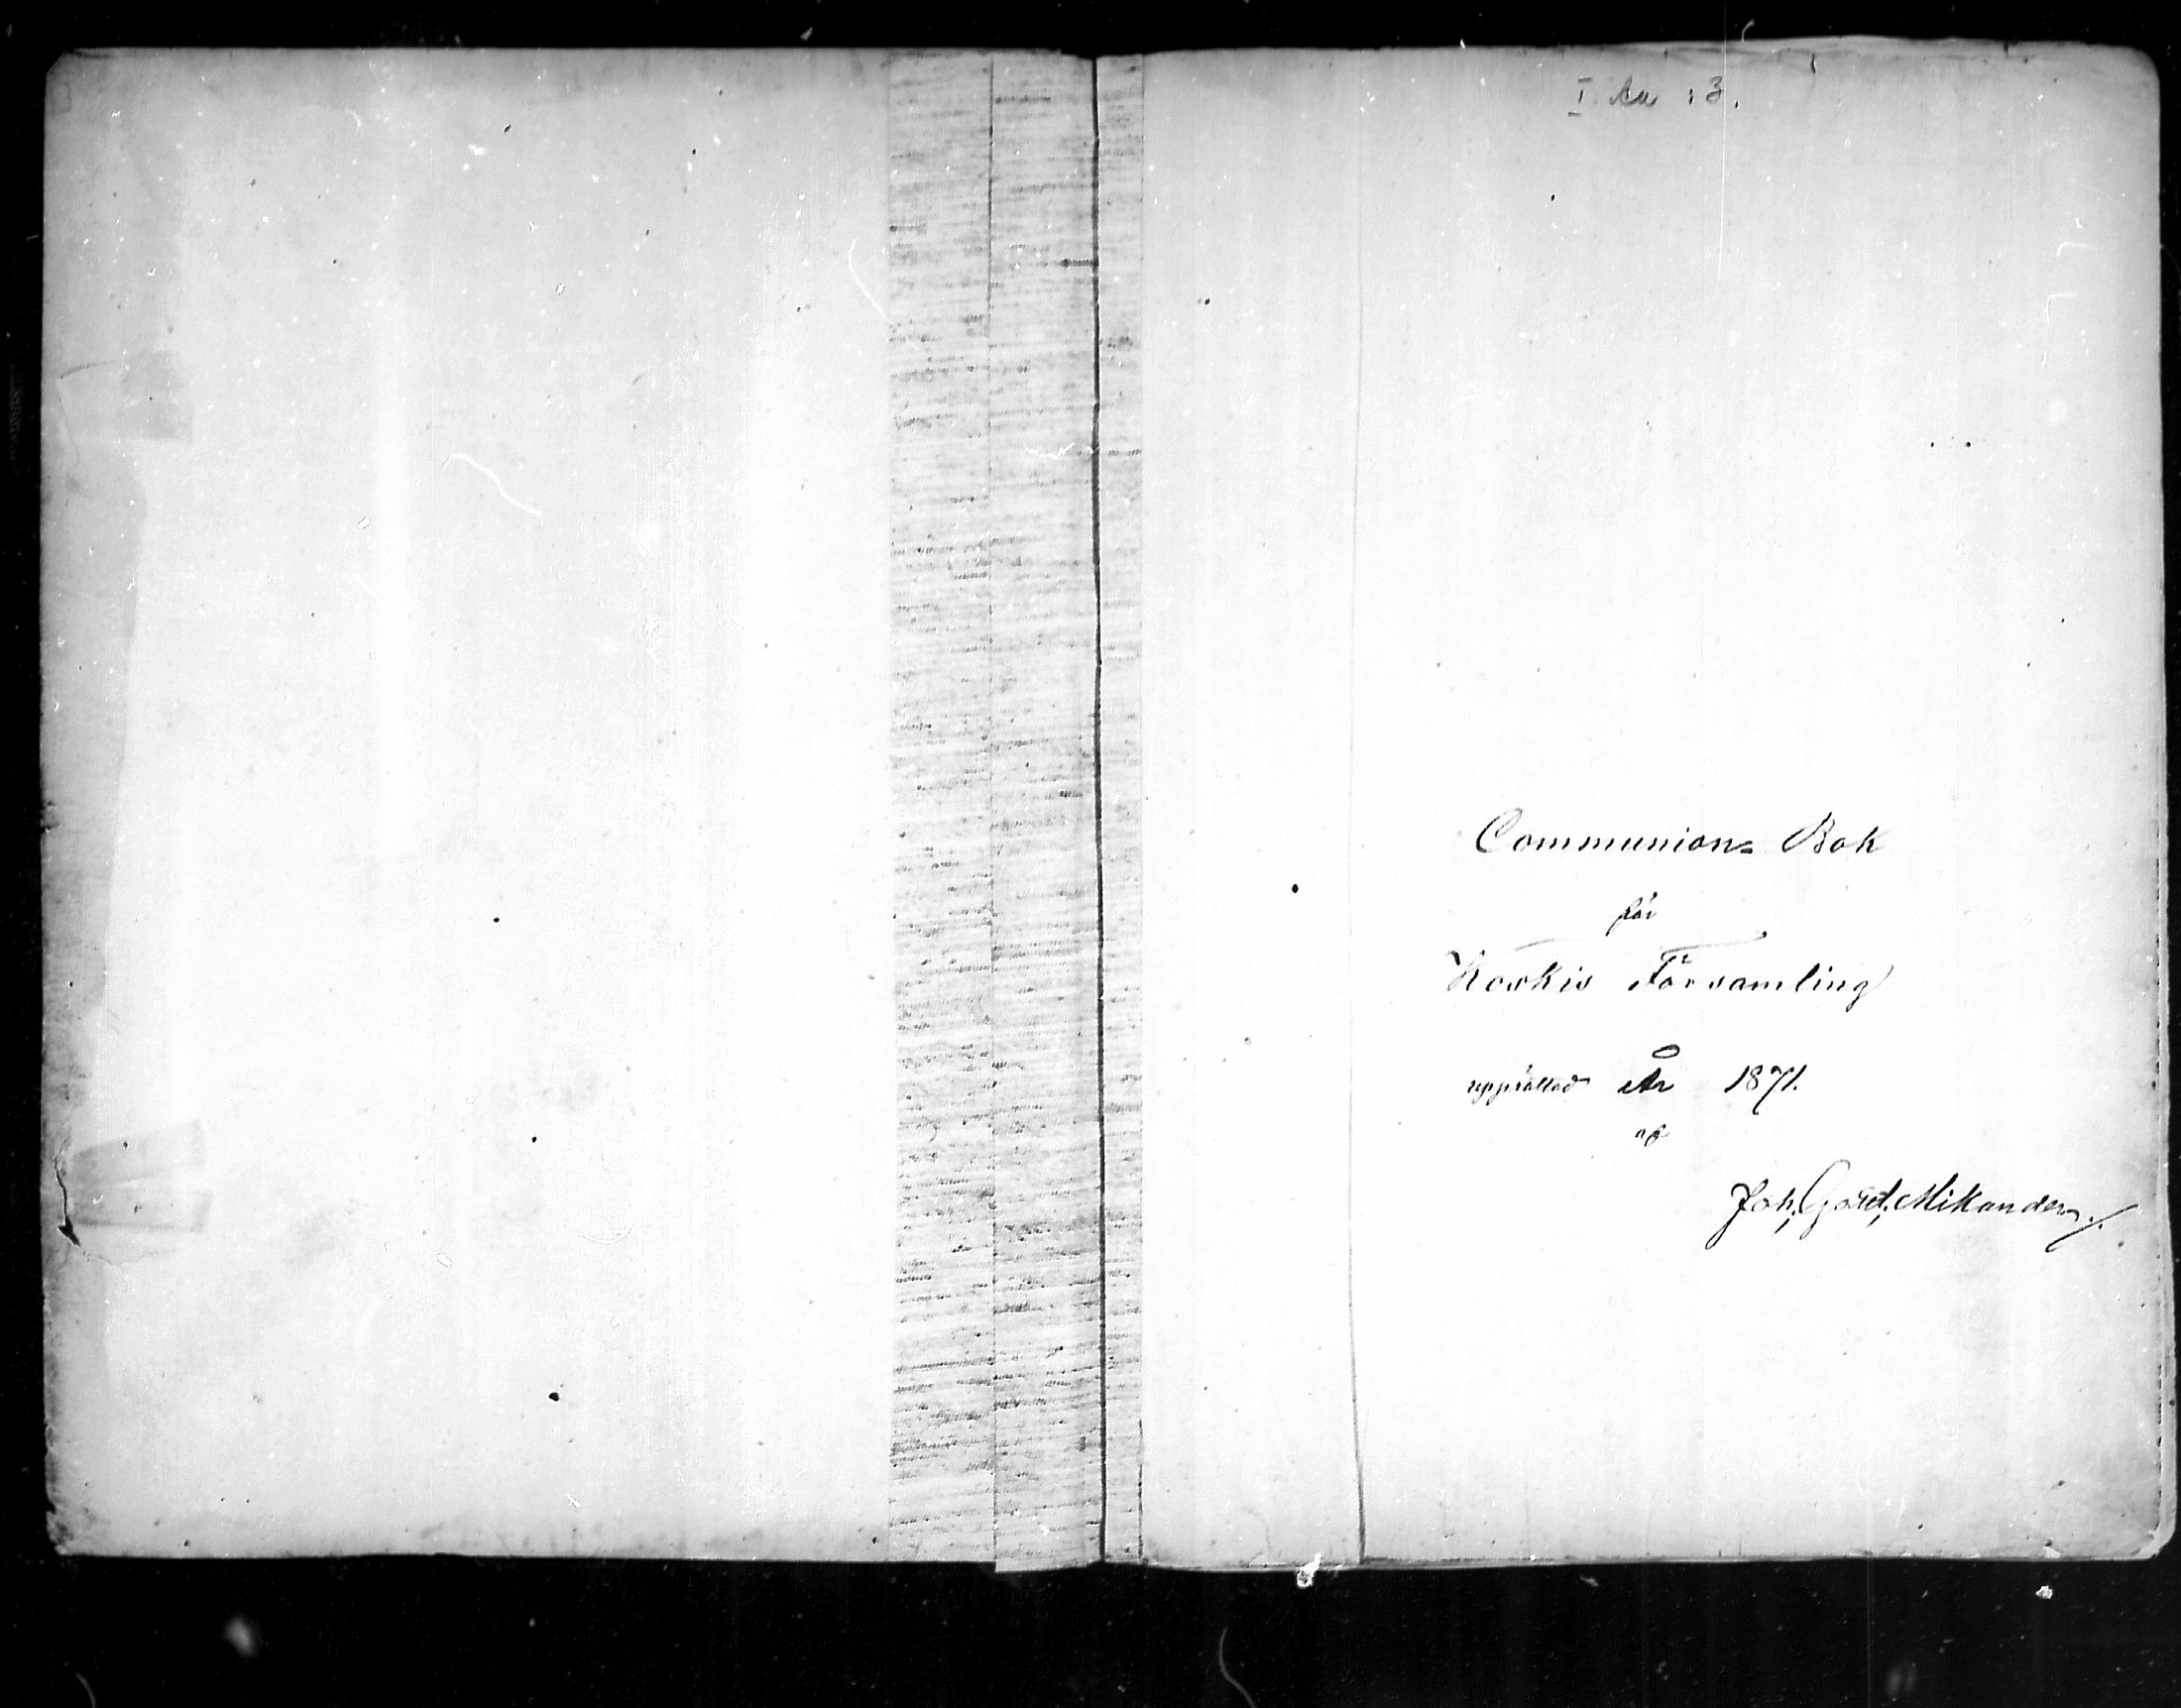 I Aa :3.
Communions Bok
för
Koskis Församling
upprättad År 1871.
af
Joh. Gust. Mikander./.